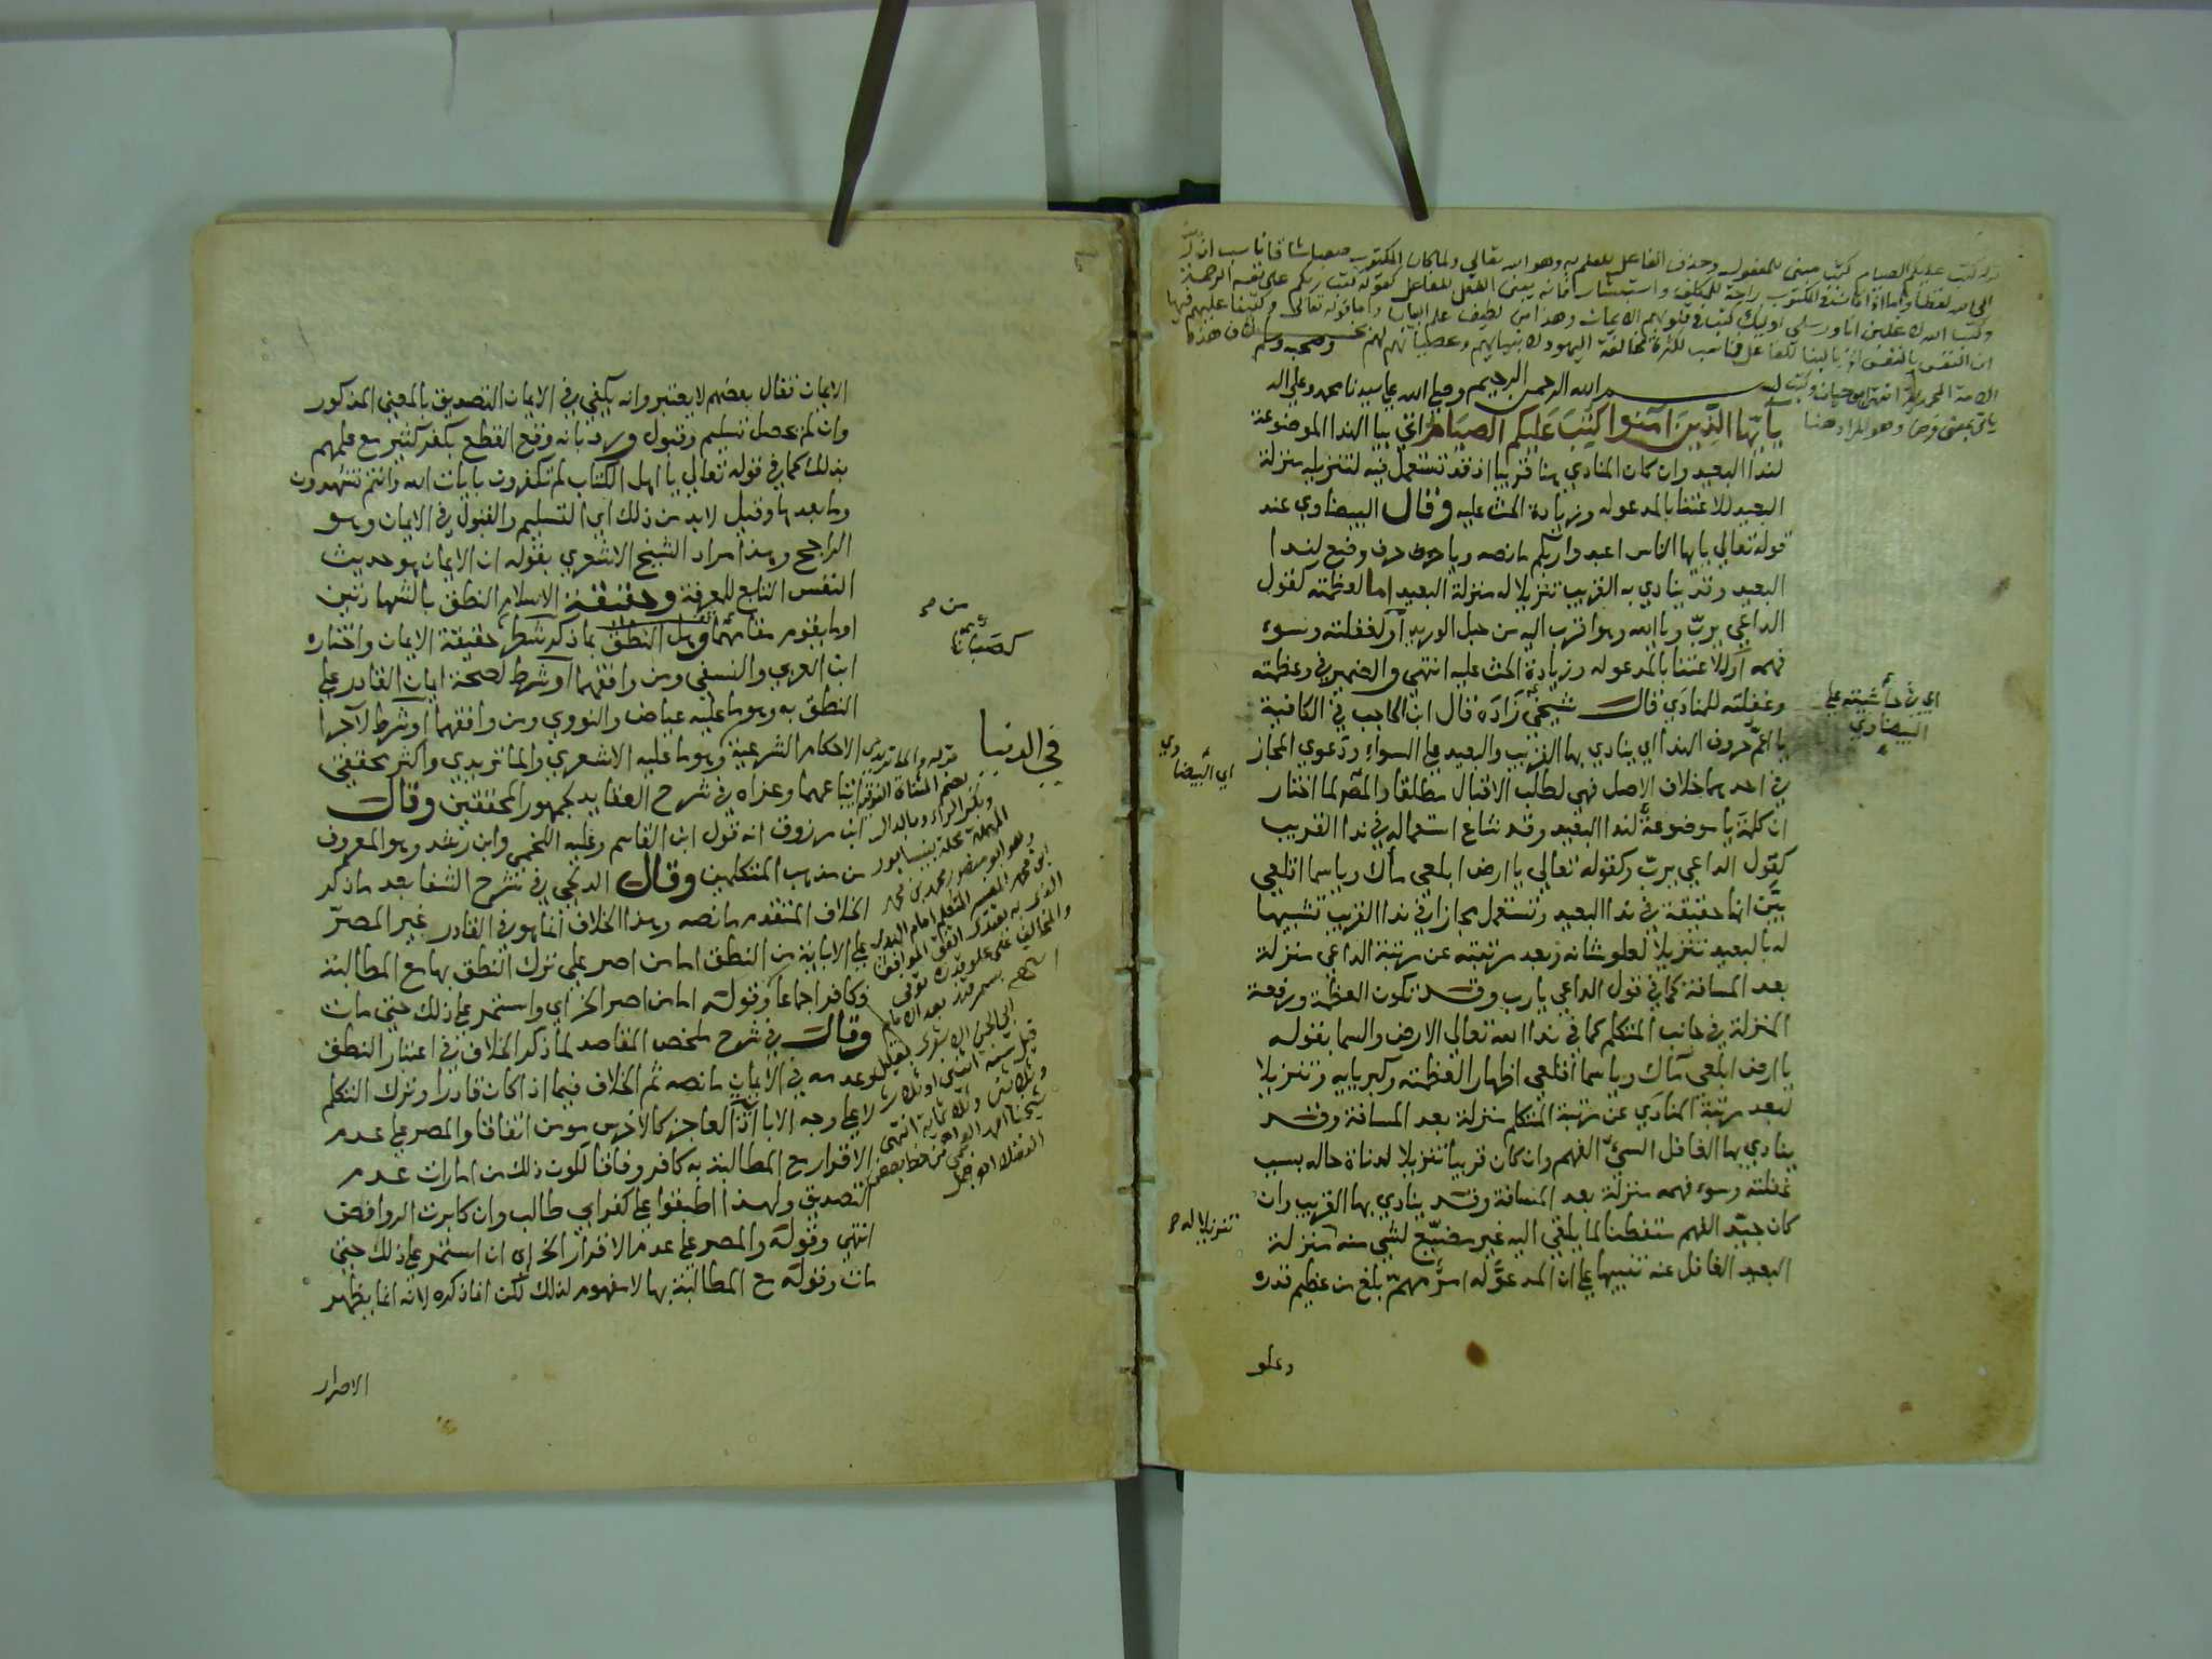 قوله كتب عليكم الصيام كتب مبني للمفعول وحذف الفاعل للعلم به وهو الله تعالى ولما كان المكتوب صعبا شاقا ناسب ان
وكتب الله لاغلبن انا ورسلي اوليك كتب في قلوبهم الايمان وهذا من لطيف علم البيان واما قوله تعالى وكتبنا عليهم فيها
بسم الله الرحمن الرحيم وصلي الله علي سيدنا محمد وعلي اله وصحبه وسلم
يا أيها الذين آمنوا كتب عليكم الصيام اتي بيا الندا الموضوعة
لندا البعيد وان كان المنادي هنا قريبا اذ قد تستعمل فيه لتنزيله منزلة
البعيد للاعتنا بالمدعو له وزيادة الحث عليه وقال البيضاوي عند
قوله تعالي يا ايها الناس اعبدوا ربكم ما نصه ويا حرف وضع لندا
البعيد وقد ينادي به القريب تنزيلا له منزلة البعيد اما لعظمته كقول
الداعي يا رب ويا الله وهو اقرب اليه من حبل الوريد او لغفلته وسوء
فهمه او للاعتنا بالمدعو له وزيادة الحث عليه انتهي والضمير في وعظمته
وغفلته للمنادي قال شيخي زاده قال ابن الحاجب في الكافية
يا اعم حروف الندا اي ينادي بها القريب والبعيد علي السواء ودعوي المجاز
في احدهما خلاف الاصل فهي لطلب الاقبال مطلقا والمص لما اختار
ان كلمة يا موضوعة لندا البعيد وقد شاع استعماله في ندا القريب
كقول الداعي يا رب وكقوله تعالي يا ارض ابلعي ماك ويا سما اقلعي
بين انها حقيقة في ندا البعيد وتستعمل مجازا في ندا القريب تشبيها
له بالبعيد تنزيلا لعلو شانه وبعد مرتبته عن مرتبة الداعي منزلة
بعد المسافة كما في قول الداعي يا رب وقد تكون العظمة ورفعة
المنزلة في جانب المتكلم كما في ندا الله تعالي الارض والسما بقوله
يا ارض ابلعي ماك ويا سما اقلعي اظهارا لعظمته وكبريايه وتنزيلا
لبعد مرتبة المنادي عن مرتبة المتكلم منزلة بعد المسافة وقد
ينادي بها الغافل السيئ الفهم وان كان قريبا تنزيلا لدناة حاله بسبب
غفلته وسوء فهمه منزلة بعد المسافة وقد ينادي بها القريب وان
كان جيد الفهم متفطنا لما يلقي اليه غير مضيع لشي منه منزلة
البعيد الغافل عنه تنبيها علي ان المدعو له امر مهم بلغ من عظيم قدره
وعلو
اي في حاشيته علي
البيضاوي
اي البيضاوي
تنزيلا له
الايمان فقال بعضهم لا يعتبر وانه يكفي في الايمان التصديق بالمعني المذكور
وان لم يحصل تسليم وقبول ورد بانه وقع القطع بكفر كثير مع علمهم
بذلك كما في قوله تعالي يا اهل الكتاب لم تكفرون بايات الله وانتم تشهدون
وما بعدها وقيل لا بد من ذلك اي التسليم والقبول في الايمان وهو
الراجح وهذا مراد الشيخ الاشعري بقوله ان الايمان هو حديث
النفس التابع للمعرفة وحقيقة الاسلام النطق بالشهادتين
او ما يقوم مقامهما وهل النطق بما ذكر شطر حقيقة الايمان واختاره
ابن العربي والنسفي ومن وافقهما او شرط لصحة ايمان القادر علي
النطق به وهو ما عليه عياض والنووي ومن وافقهما او شرط لاجرا
الاحكام الشرعية وهو ما عليه الاشعري والماتريدي واكثر محققي
اتباعهما وعزاه في شرح العقايد لجمهور المحققين وقال
ابن مرزوق انه قول ابن القاسم وعليه اللخمي وابن رشد وهو المعروف
من مذهب المتكلمين وقال الدلجي في شرح الشفا بعد ما ذكر
الخلاف المتقدم ما نصه وهذا الخلاف انما هو في القادر غير المصر
علي الاباية من النطق اما من اصر علي ترك النطق بها مع المطالبة
فكافر اجماعا وقوله اما من اصر الخ اي واستمر علي ذلك حتي مات
وقال في شرح ملخص المقاصد لما ذكر الخلاف في اعتبار النطق
وعدمه في الايمان ما نصه ثم الخلاف فيما اذا كان قادرا وترك التكلم
لا علي وجه الابا اذ العاجز كالاخرس مومن اتفاقا والمصر علي عدم
الاقرار مع المطالبة به كافر وفاقا لكون ذلك من امارات عدم
التصديق ولهذا اطبقوا علي كفر ابي طالب وان كابرت الروافض
انتهي وقوله والمصر علي عدم الاقرار الخ اي ان استمر علي ذلك حتي
مات وقوله مع المطالبة بها لا مفهوم لذلك لكن انما ذكره لانه انما يظهر
الاصرار
في الدنيا
قوله والماتريدي
بضم المثناة الفوقية
وبكسر الراء وبالدال
المهملة محلة بنيسابور
وهو ابو منصور محمد بن محمد